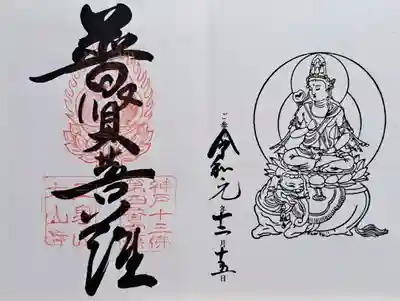 令和元年十二月十五日
普賢菩薩
神戸十三佛